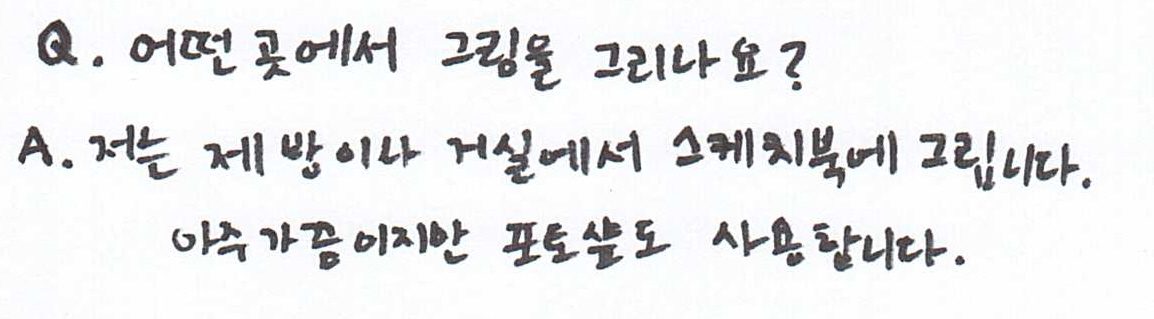 Q. 어떤 곳에서 그림을 그리나요?
A. 저는 제 방이나 거실에서 스케치북에 그립니다.
아주 가끔이지만 포토샾도 사용합니다.